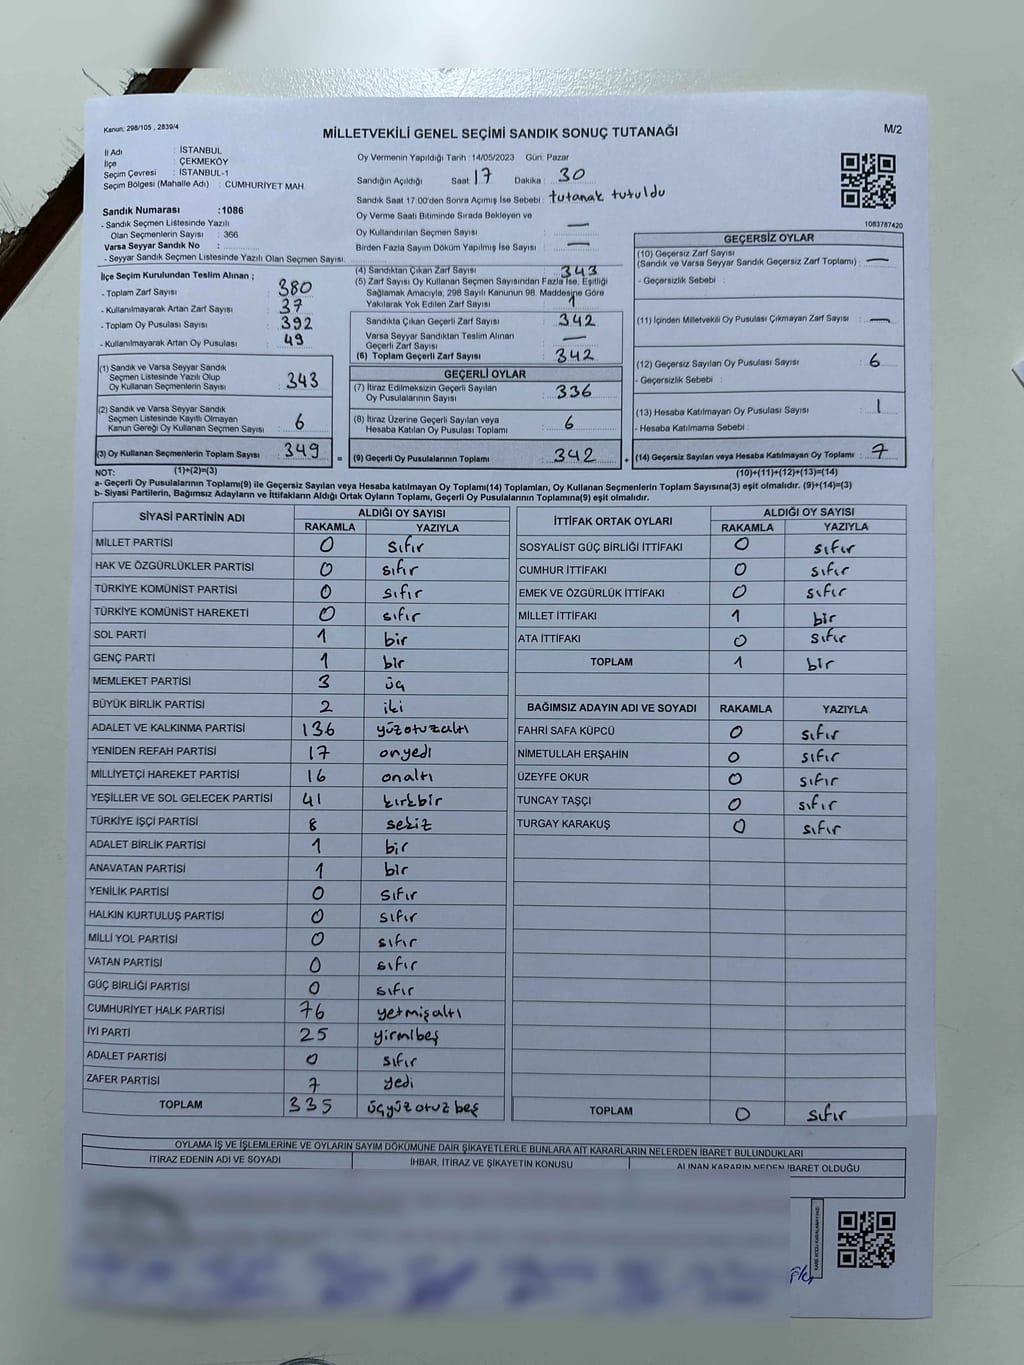 Kanun: 298/105 , 2839/4
MİLLETVEKİLİ GENEL SEÇİMİ SANDIK SONUÇ TUTANAĞI
M/2
İl Adı : İSTANBUL
İlçe : ÇEKMEKÖY
Seçim Çevresi : İSTANBUL-1
Seçim Bölgesi (Mahalle Adı) : CUMHURİYET MAH.
Sandık Numarası :1086
- Sandık Seçmen Listesinde Yazılı
Olan Seçmenlerin Sayısı : 366
Varsa Seyyar Sandık No :
- Seyyar Sandık Seçmen Listesinde Yazılı Olan Seçmen Sayısı:
Oy Vermenin Yapıldığı Tarih : 14/05/2023 Gün: Pazar
Sandığın Açıldığı Saat : 17 Dakika : 30
Sandık Saat 17:00'den Sonra Açımış İse Sebebi : tutanak tutuldu
Oy Verme Saati Bitiminde Sırada Bekleyen ve
Oy Kullandırılan Seçmen Sayısı : —
Birden Fazla Sayım Döküm Yapılmış İse Sayısı : —
1083787420
İlçe Seçim Kurulundan Teslim Alınan ;
- Toplam Zarf Sayısı : 380
- Kullanılmayarak Artan Zarf Sayısı : 37
- Toplam Oy Pusulası Sayısı : 392
- Kullanılmayarak Artan Oy Pusulası : 49
(1) Sandık ve Varsa Seyyar Sandık
Seçmen Listesinde Yazılı Olup
Oy Kullanan Seçmenlerin Sayısı : 343
(2) Sandık ve Varsa Seyyar Sandık
Seçmen Listesinde Kayıtlı Olmayan
Kanun Gereği Oy Kullanan Seçmen Sayısı : 6
(3) Oy Kullanan Seçmenlerin Toplam Sayısı : 349 =
(4) Sandıktan Çıkan Zarf Sayısı : 343
(5) Zarf Sayısı Oy Kullanan Seçmen Sayısından Fazla İse, Eşitliği
Sağlamak Amacıyla, 298 Sayılı Kanunun 98. Maddesine Göre
Yakılarak Yok Edilen Zarf Sayısı : 1
Sandıkta Çıkan Geçerli Zarf Sayısı : 342
Varsa Seyyar Sandıktan Teslim Alınan
Geçerli Zarf Sayısı : —
(6) Toplam Geçerli Zarf Sayısı : 342
GEÇERLİ OYLAR
(7) İtiraz Edilmeksizin Geçerli Sayılan
Oy Pusulalarının Sayısı : 336
(8) İtiraz Üzerine Geçerli Sayılan veya
Hesaba Katılan Oy Pusulası Toplamı : 6
(9) Geçerli Oy Pusulalarının Toplamı : 342 +
GEÇERSİZ OYLAR
(10) Geçersiz Zarf Sayısı
(Sandık ve Varsa Seyyar Sandık Geçersiz Zarf Toplamı) : —
- Geçersizlik Sebebi :
(11) İçinden Milletvekili Oy Pusulası Çıkmayan Zarf Sayısı : —
(12) Geçersiz Sayılan Oy Pusulası Sayısı : 6
- Geçersizlik Sebebi :
(13) Hesaba Katılmayan Oy Pusulası Sayısı : 1
- Hesaba Katılmama Sebebi :
(14) Geçersiz Sayılan veya Hesaba Katılmayan Oy Toplamı : 7
NOT: (1)+(2)=(3) (10)+(11)+(12)+(13)=(14)
a- Geçerli Oy Pusulalarının Toplamı(9) ile Geçersiz Sayılan veya Hesaba katılmayan Oy Toplamı(14) Toplamları, Oy Kullanan Seçmenlerin Toplam Sayısına(3) eşit olmalıdır. (9)+(14)=(3)
b- Siyasi Partilerin, Bağımsız Adayların ve İttifakların Aldığı Ortak Oyların Toplamı, Geçerli Oy Pusulalarının Toplamına(9) eşit olmalıdır.
SİYASİ PARTİNİN ADI ALDIĞI OY SAYISI
RAKAMLA YAZIYLA
MİLLET PARTİSİ 0 sıfır
HAK VE ÖZGÜRLÜKLER PARTİSİ 0 sıfır
TÜRKİYE KOMÜNİST PARTİSİ 0 sıfır
TÜRKİYE KOMÜNİST HAREKETİ 0 sıfır
SOL PARTİ 1 bir
GENÇ PARTİ 1 bir
MEMLEKET PARTİSİ 3 üç
BÜYÜK BİRLİK PARTİSİ 2 iki
ADALET VE KALKINMA PARTİSİ 136 yüzotuzaltı
YENİDEN REFAH PARTİSİ 17 onyedi
MİLLİYETÇİ HAREKET PARTİSİ 16 onaltı
YEŞİLLER VE SOL GELECEK PARTİSİ 41 kırkbir
TÜRKİYE İŞÇİ PARTİSİ 8 sekiz
ADALET BİRLİK PARTİSİ 1 bir
ANAVATAN PARTİSİ 1 bir
YENİLİK PARTİSİ 0 sıfır
HALKIN KURTULUŞ PARTİSİ 0 sıfır
MİLLİ YOL PARTİSİ 0 sıfır
VATAN PARTİSİ 0 sıfır
GÜÇ BİRLİĞİ PARTİSİ 0 sıfır
CUMHURİYET HALK PARTİSİ 76 yetmişaltı
İYİ PARTİ 25 yirmibeş
ADALET PARTİSİ 0 sıfır
ZAFER PARTİSİ 7 yedi
TOPLAM 335 üçyüz otuz beş
İTTİFAK ORTAK OYLARI ALDIĞI OY SAYISI
RAKAMLA YAZIYLA
SOSYALİST GÜÇ BİRLİĞİ İTTİFAKI 0 sıfır
CUMHUR İTTİFAKI 0 sıfır
EMEK VE ÖZGÜRLÜK İTTİFAKI 0 sıfır
MİLLET İTTİFAKI 1 bir
ATA İTTİFAKI 0 sıfır
TOPLAM 1 bir
BAĞIMSIZ ADAYIN ADI VE SOYADI RAKAMLA YAZIYLA
FAHRİ SAFA KÜPCÜ 0 sıfır
NİMETULLAH ERŞAHİN 0 sıfır
ÜZEYFE OKUR 0 sıfır
TUNCAY TAŞÇI 0 sıfır
TURGAY KARAKUŞ 0 sıfır
TOPLAM 0 sıfır
OYLAMA İŞ VE İŞLEMLERİNE VE OYLARIN SAYIM DÖKÜMÜNE DAİR ŞİKAYETLERLE BUNLARA AİT KARARLARIN NELERDEN İBARET BULUNDUKLARI
İTİRAZ EDENİN ADI VE SOYADI İHBAR, İTİRAZ VE ŞİKAYETİN KONUSU ALINAN KARARIN NEDEN İBARET OLDUĞU